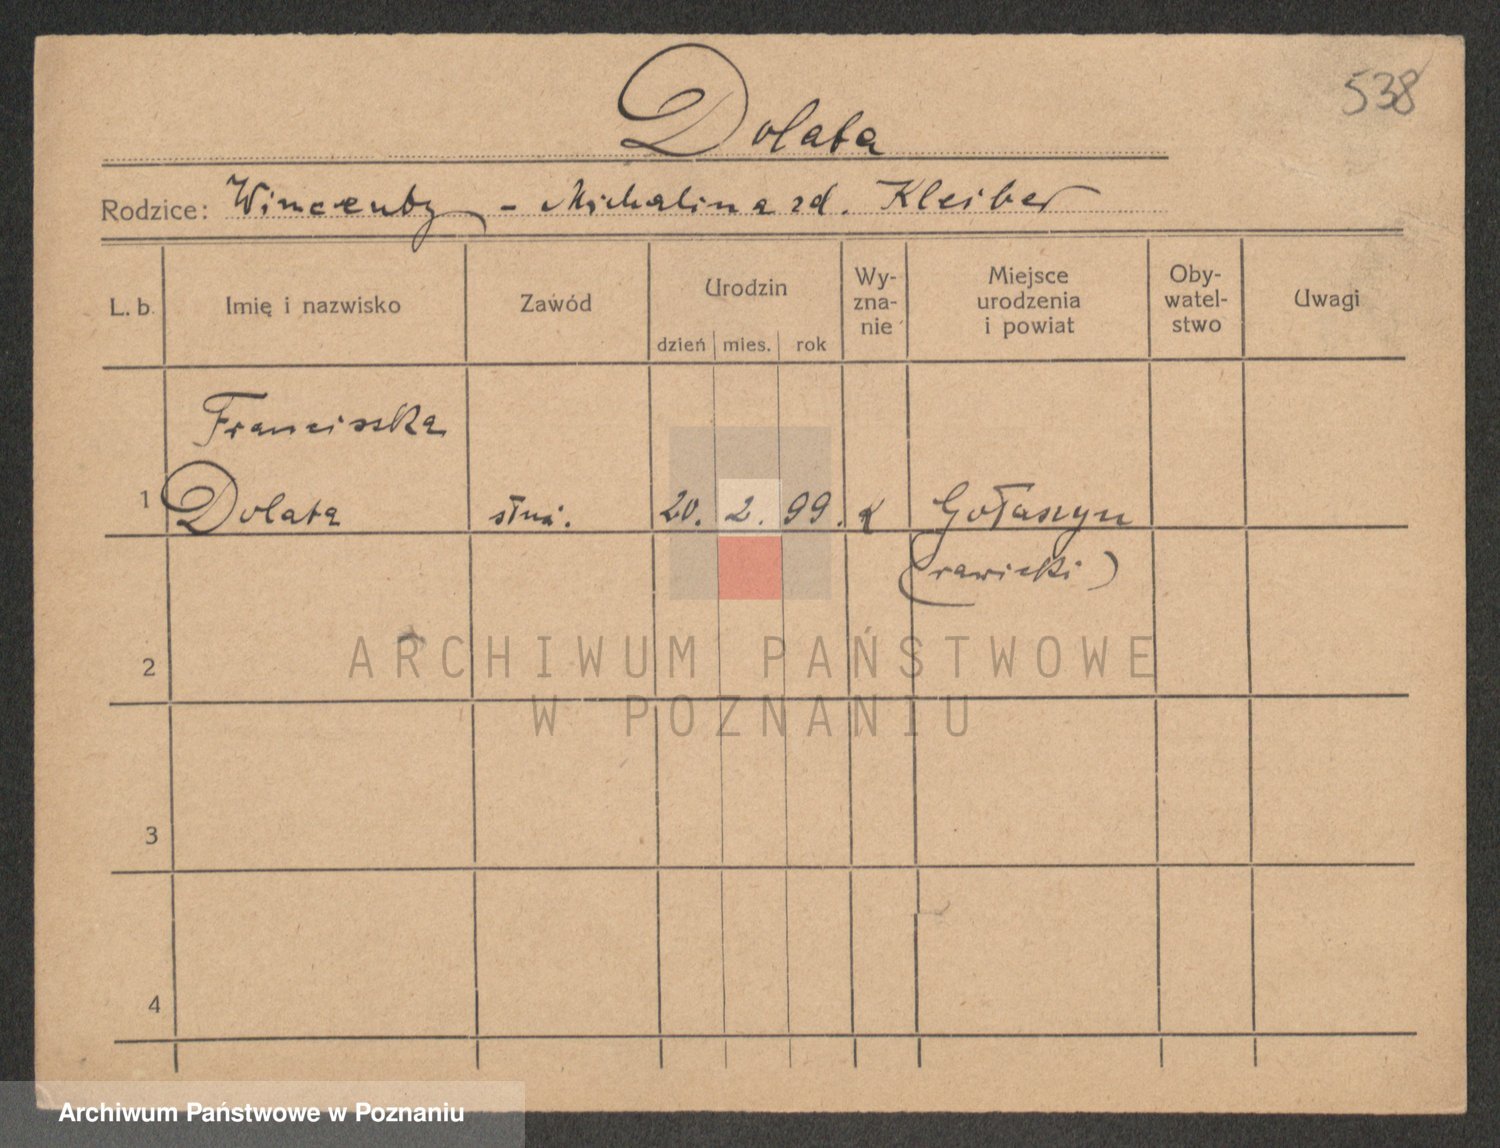 538
Dolata
Rodzice: Wincenty - Michalina zd. Kleiber
L. b. Imię i nazwisko Zawód Urodzin dzień mies. rok Wy-zna-nie Miejsce urodzenia i powiat Oby-watel-stwo Uwagi
Franciszka
1 Dolata służ. 20. 2. 99. k Gołaszyn
(rawicki)
2
ARCHIWUM PAŃSTWOWE
W POZNANIU
3
4
Archiwum Państwowe w Poznaniu